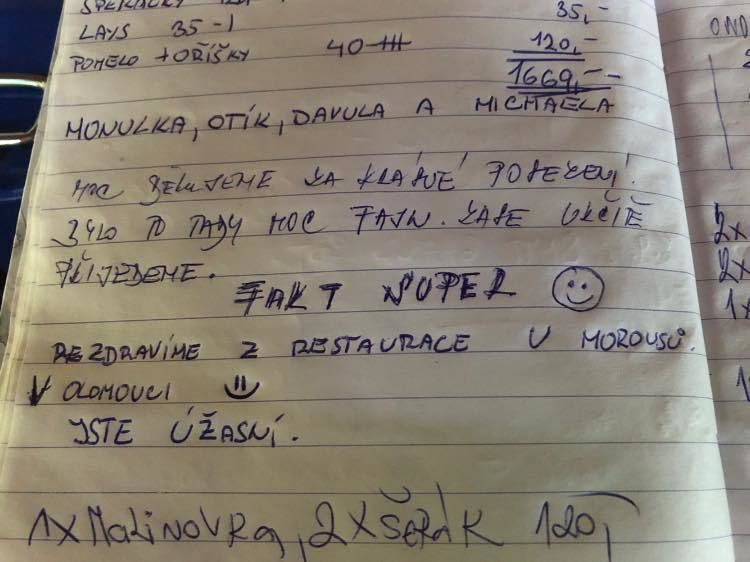 35,-
LAYS 35-1
POMELO + OŘÍŠKY 40 120,-
1669,-
MONULKA, OTÍK, DAVULA A MICHAELA
MOC DĚKUJEME ZA KRÁSNÉ POSEZENÍ.
BYLO TO TADY MOC FAJN. ZASE URČITĚ
PŘIJEDEME.
FAKT SUPER
POZDRAVÍME Z RESTAURACE U MOROUSŮ.
V OLOMOUCI
JSTE ÚŽASNÍ.
1X MALINOVKA, 2X ŠERÁK 120,
OND
2X
2X
1X